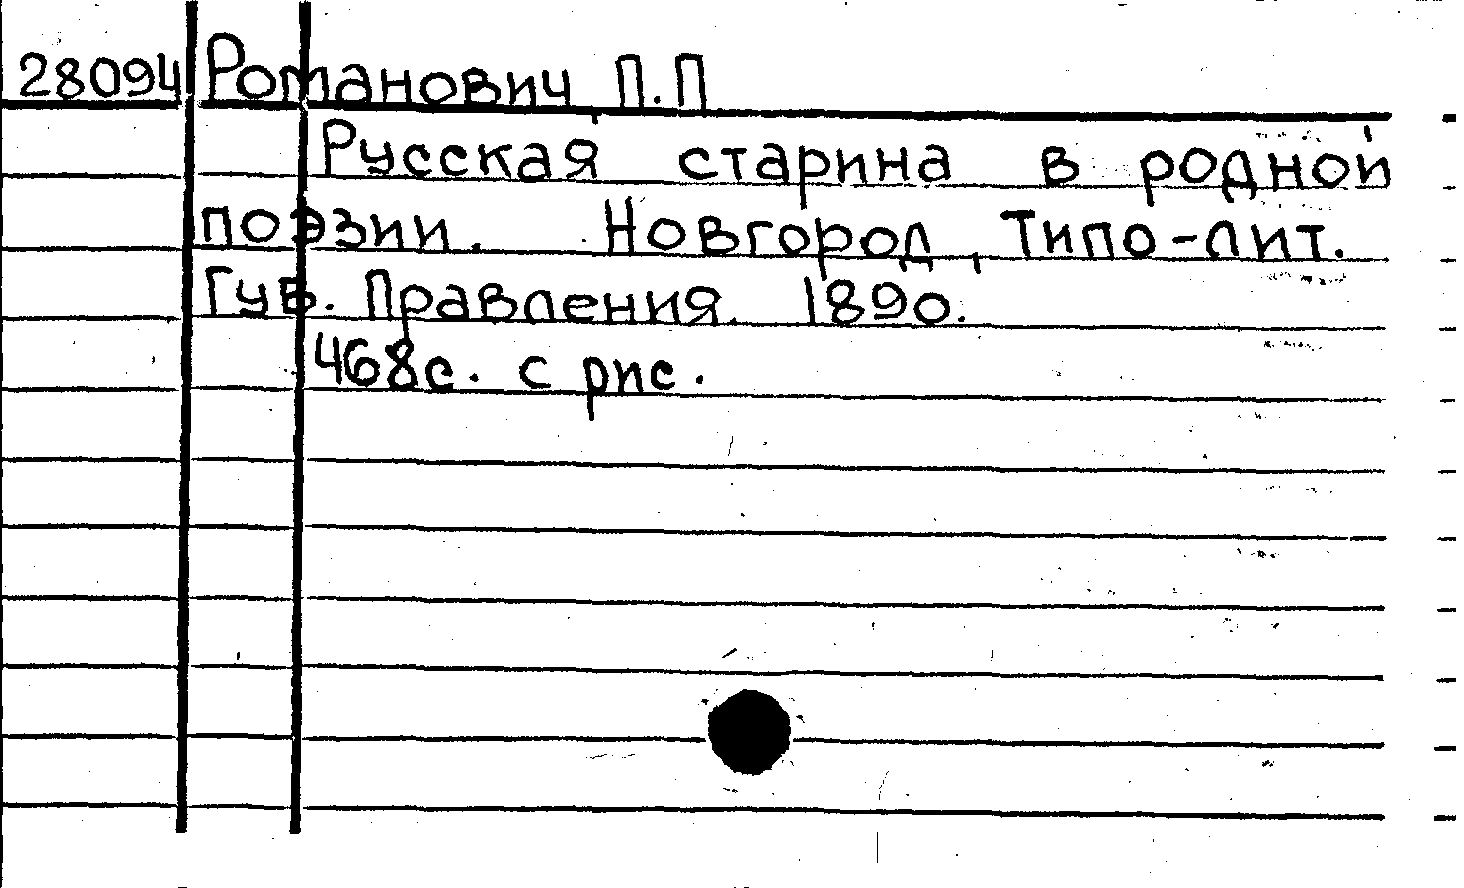 28094 Романович П.П
Русская старина в родной
поэзии. Новгород, Типо-лит.
Губ. Правления. 1890.
468с. с рис.